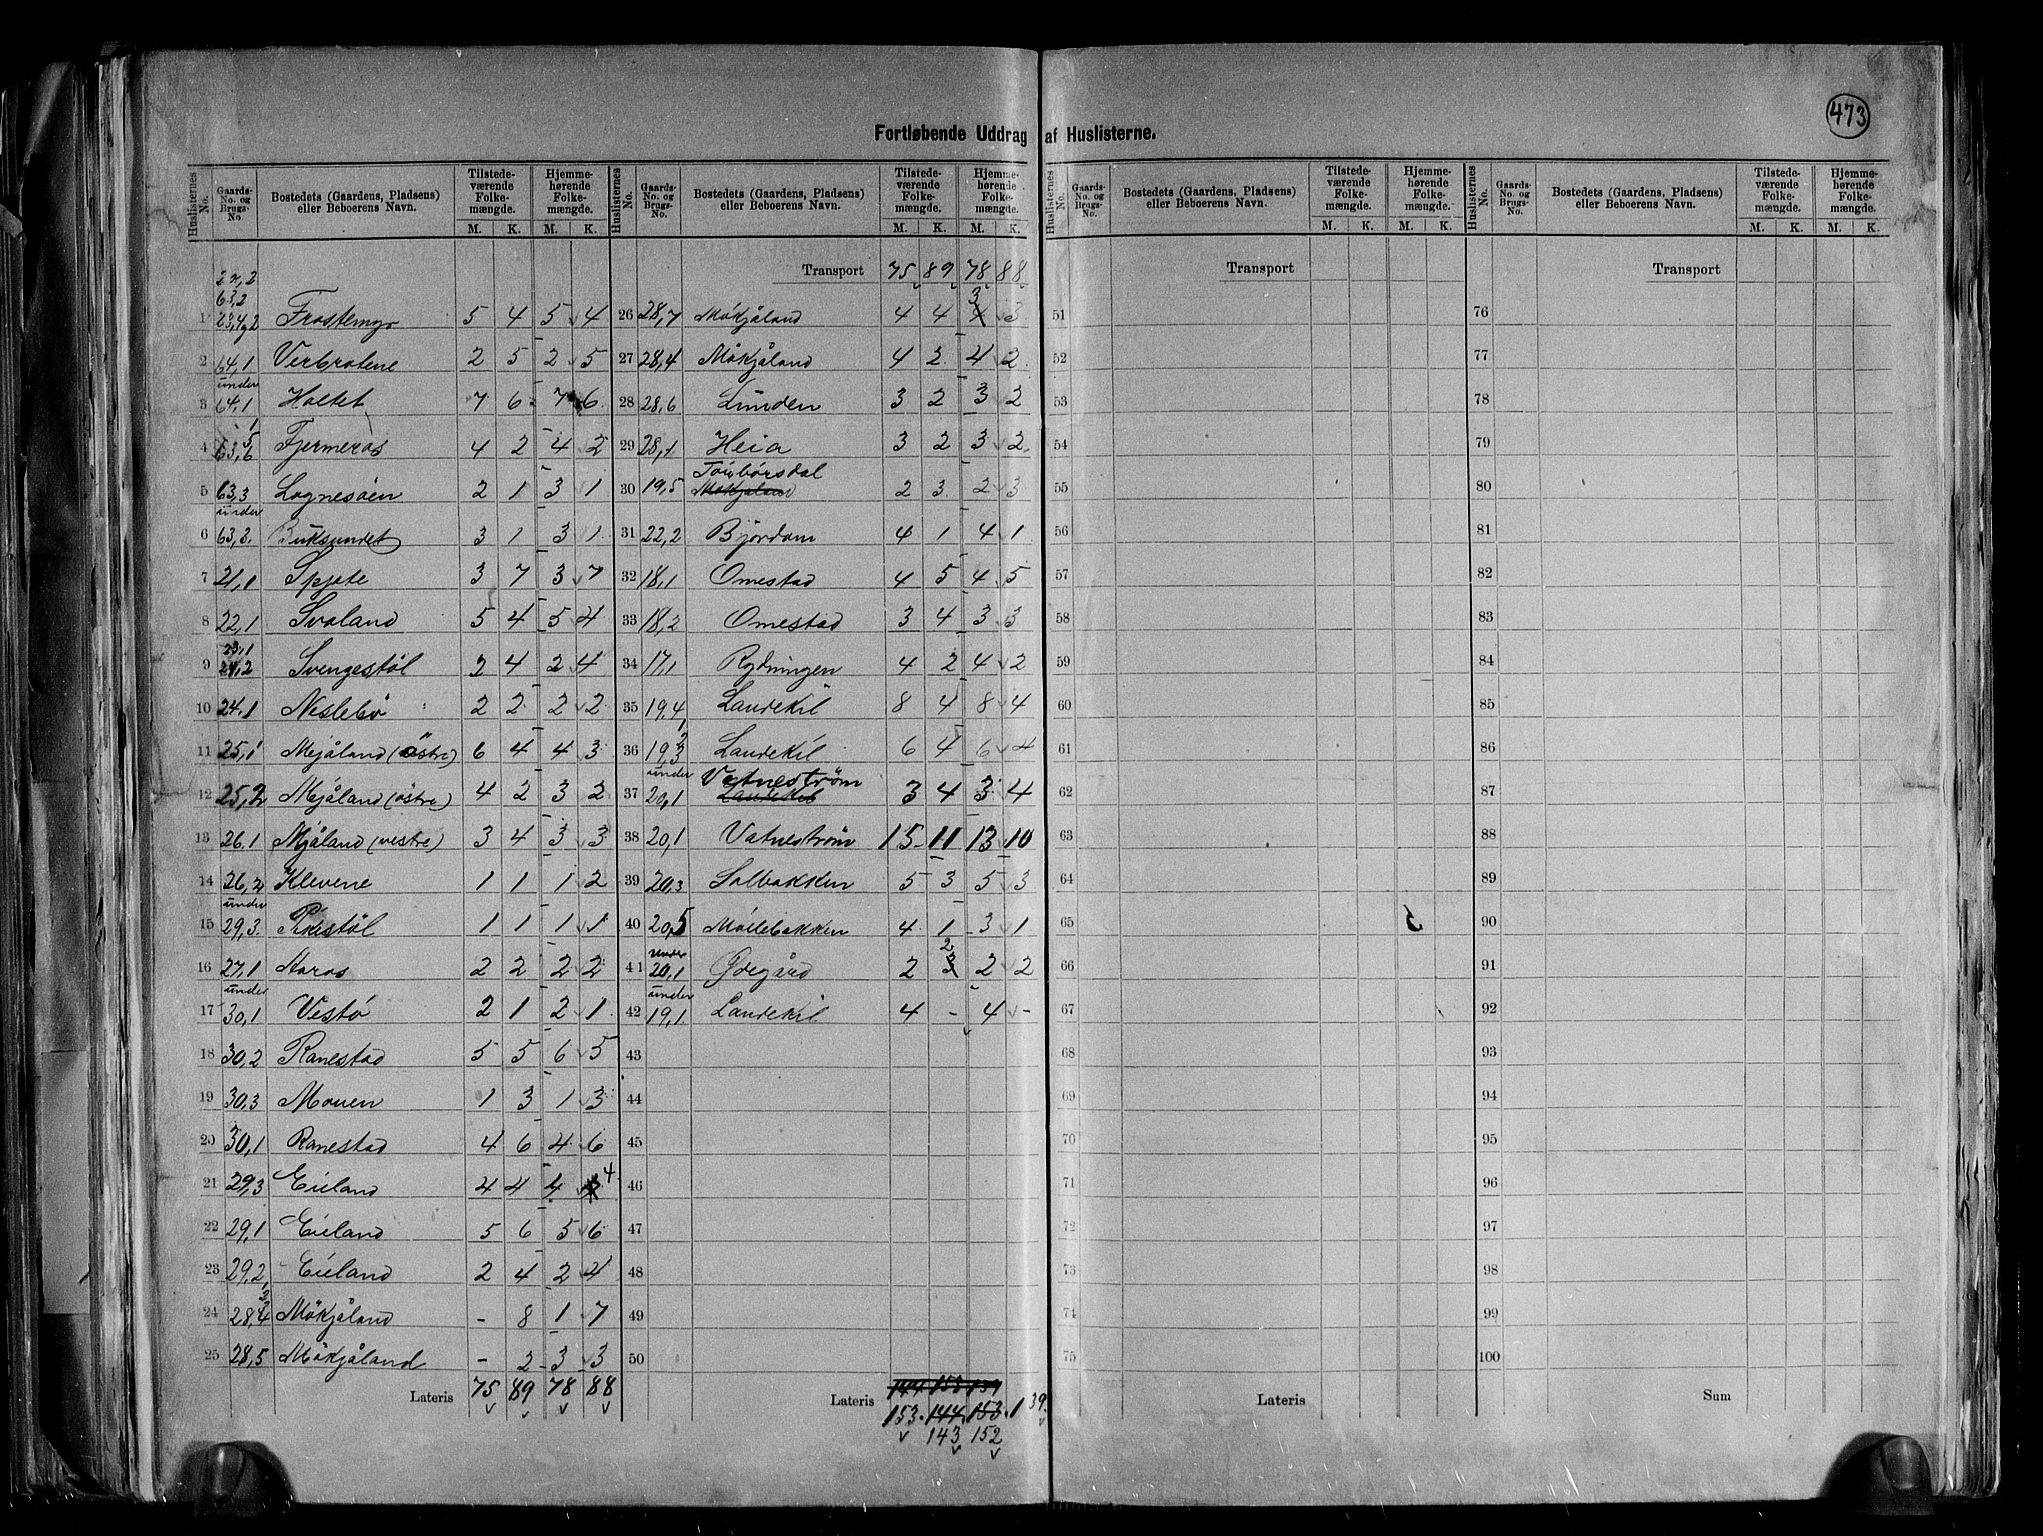 473
Fortløbende Uddrag af Huslisterne.
Huslisternes No. | Gaards-No. og Brugs-No. | Bostedets (Gaardens, Pladsens) eller Beboerens Navn. | Tilstedeværende Folkemængde. M. K. | Hjemmehørende Folkemængde. M. K.
1 | 63,2 | Frostemyr | 5 | 4 | 5 | 4
2 | 64,1 | Verbratene | 2 | 5 | 2 | 5
3 | under 64,1 | Holtet | 7 | 6 | 7 | 6
4 | 63,6 | Fjermeros | 4 | 2 | 4 | 2
5 | 63,3 | Lognesöen | 2 | 1 | 3 | 1
6 | under 63,3. | Buksundet | 3 | 1 | 3 | 1
7 | 21,1 | Spjote | 3 | 7 | 3 | 7
8 | 22,1 | Svaland | 5 | 4 | 5 | 4
9 | 23,1 24,2 | Svengestöl | 2 | 4 | 2 | 4
10 | 24,1 | Neslebö | 2 | 2 | 2 | 2
11 | 25,1 | Mjåland (östre) | 6 | 4 | 4 | 3
12 | 25,2 | Mjåland (östre) | 4 | 2 | 3 | 2
13 | 26,1 | Mjåland (vestre) | 3 | 4 | 3 | 3
14 | 26,2 | Klevene | 1 | 1 | 1 | 2
15 | under 29,3. | Pikestöl | 1 | 1 | 1 | 1
16 | 27,1 | Aaros | 2 | 2 | 2 | 2
17 | under 30,1 | Vestö | 2 | 1 | 2 | 1
18 | 30,2 | Ranestad | 5 | 5 | 6 | 5
19 | 30,3 | Mouen | 1 | 3 | 1 | 3
20 | 30,1 | Ranestad | 4 | 6 | 4 | 6
21 | 29,3 | Eieland | 4 | 4 | 4 | 4
22 | 29,1 | Eieland | 5 | 6 | 5 | 6
23 | 29,2 | Eieland | 2 | 4 | 2 | 4
24 | 28,4 | Mökjåland | - | 8 | 1 | 7
25 | 28,5 | Mökjåland | - | 2 | 3 | 3
Lateris 75 89 78 88
Huslisternes No. | Gaards-No. og Brugs-No. | Bostedets (Gaardens, Pladsens) eller Beboerens Navn. | Tilstedeværende Folkemængde. M. K. | Hjemmehørende Folkemængde. M. K.
Transport 75 89 78 88
26 | 28,7 | Mökjåland | 4 | 4 | 4 3 | 3
27 | 28,4 | Mökjåland | 4 | 2 | 4 | 2
28 | 28,6 | Lunden | 3 | 2 | 3 | 2
29 | 28,1 | Heia | 3 | 2 | 3 | 2
30 | 19,5 | Toubörsdal Mökjåland | 2 | 3 | 2 | 3
31 | 22,2 | Björdam | 4 | 1 | 4 | 1
32 | 18,1 | Omestad | 4 | 5 | 4 | 5
33 | 18,2 | Omestad | 3 | 4 | 3 | 3
34 | 17,1 | Rydningen | 4 | 2 | 4 | 2
35 | 19,4 | Laudekil | 8 | 4 | 8 | 4
36 | 19,3 | Laudekil | 6 | 4 | 6 | 4
37 | under 20,1 | Vatneström Laudekil | 3 | 4 | 3 | 4
38 | 20,1 | Vatneström | 15 | 11 | 13 | 10
39 | 20,3 | Solbakken | 5 | 3 | 5 | 3
40 | 20,5 | Möllebakken | 4 | 1 | 3 | 1
41 | under 20,1 | Ødegård | 2 | 3 2 | 2 | 2
42 | under 19,1. | Laudekil | 4 | - | 4 | -
43
44
45
46
47
48
49
50
Lateris 144 153 139
153. 144. 153. 139.
143 152
Huslisternes No. | Gaards-No. og Brugs-No. | Bostedets (Gaardens, Pladsens) eller Beboerens Navn. | Tilstedeværende Folkemængde. M. K. | Hjemmehørende Folkemængde. M. K.
Transport
51
52
53
54
55
56
57
58
59
60
61
62
63
64
65
66
67
68
69
70
71
72
73
74
75
Lateris
Huslisternes No. | Gaards-No. og Brugs-No. | Bostedets (Gaardens, Pladsens) eller Beboerens Navn. | Tilstedeværende Folkemængde. M. K. | Hjemmehørende Folkemængde. M. K.
Transport
76
77
78
79
80
81
82
83
84
85
86
87
88
89
90
91
92
93
94
95
96
97
98
99
100
Sum